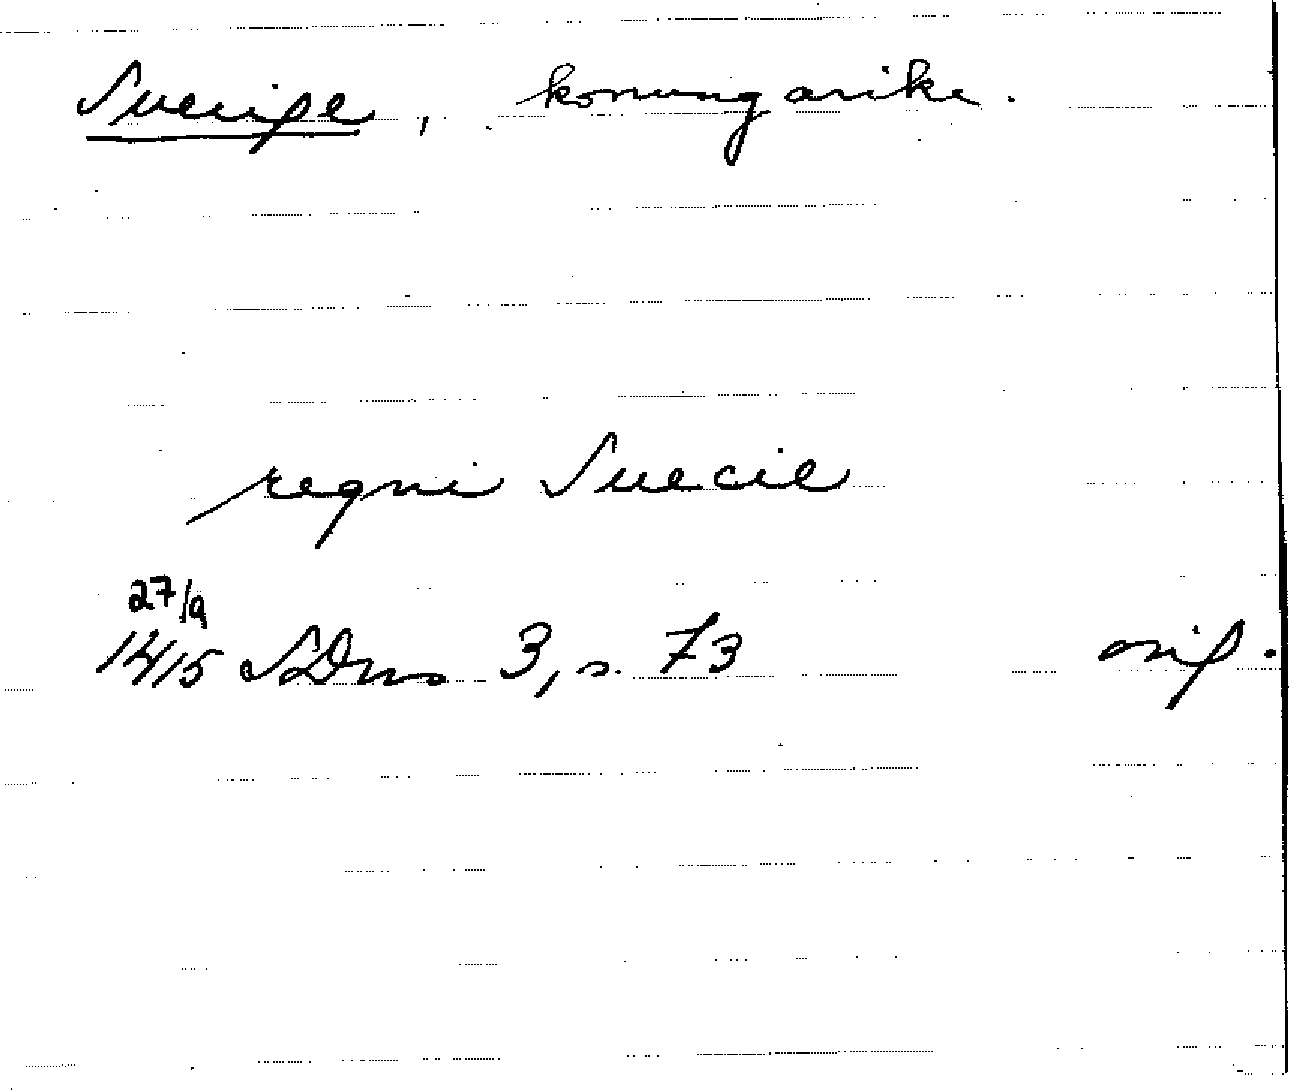 Sverige, konungarike.
regni Suecie
27/9
1415 SDns 3, s. 73 orig.